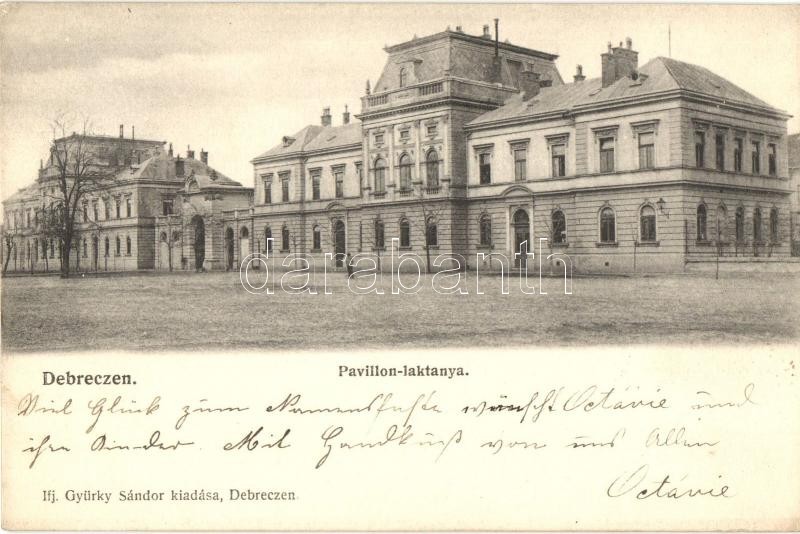 darabanth
Debreczen.
Pavillon-laktanya.
Viel Glück zum Namensfeste wünscht Octávie und
ihre Kinder. Mit Handkuß von uns Allen
Octávie
Ifj. Gyürky Sándor kiadása, Debreczen.